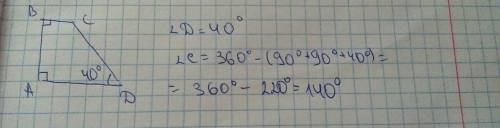 B
C
A
40°
D
∠D=40°
∠C=360°-(90°+90°+40°)=
= 360°-220°=140°